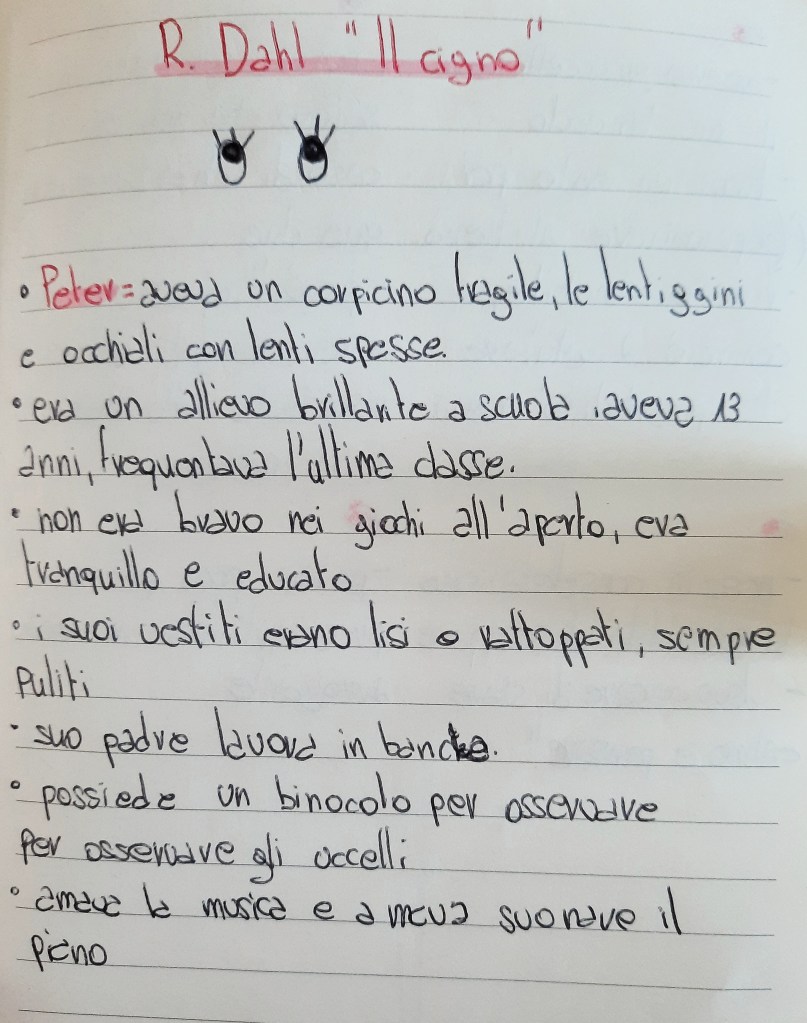 R. Dahl "Il cigno"
• Peter = aveva un corpicino fragile, le lentiggini
e occhiali con lenti spesse.
• era un allievo brillante a scuola, aveva 13
anni, frequentava l'ultima classe.
• non era bravo nei giochi all'aperto, era
tranquillo e educato
• i suoi vestiti erano lisi o rattoppati, sempre
puliti
• suo padre lavora in banca.
• possiede un binocolo per osservare
per osservare gli uccelli
• amava la musica e amava suonare il
piano